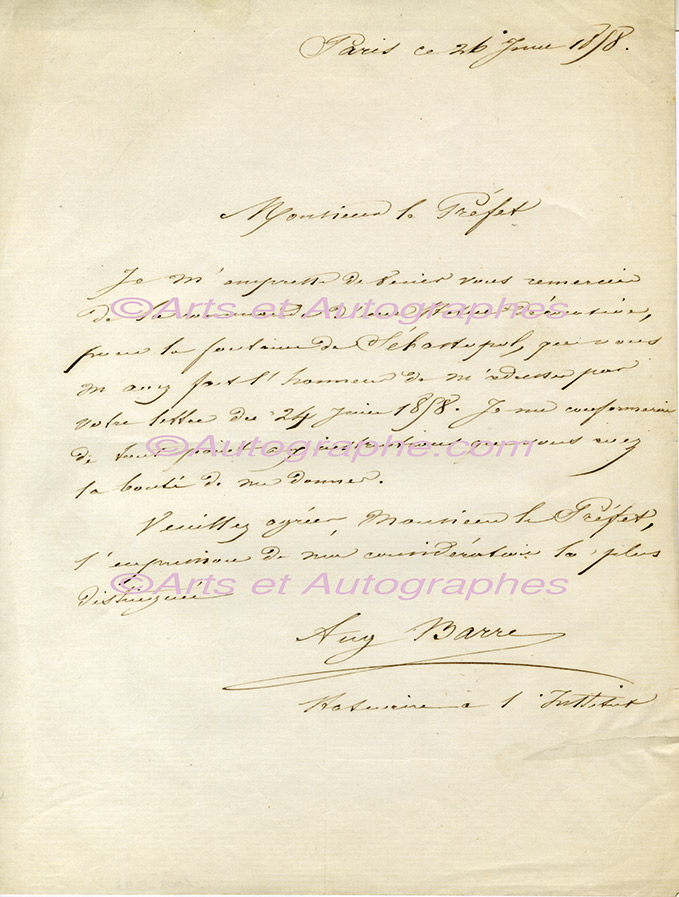 Paris ce 26 Juin 1858.
Monsieur le Préfet
Je m'empresse de venir vous remercier
©Arts et Autographes
de la commande d'une
pour la fontaine de Sébastopol, que vous
m'avez fait l'honneur de m'adresser par
votre lettre du 24 Juin 1858. Je me conformerai
©Autographe.com
de tout point aux instructions que vous avez
la bonté de me donner.
Veuillez agréer, Monsieur le Préfet,
l'expression de ma considération la plus
©Arts et Autographes
distinguée
Aug Barre
à l'Institut